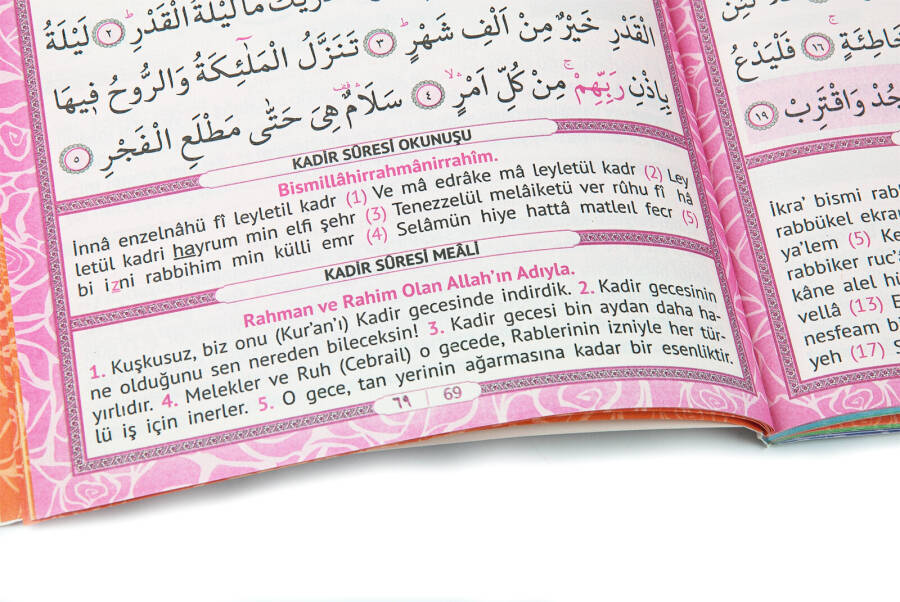 الْقَدْرِ ﴿٢﴾ لَيْلَةُ
الْقَدْرِ خَيْرٌ مِنْ اَلْفِ شَهْرٍ ﴿٣﴾ تَنَزَّلُ الْمَلٰٓئِكَةُ وَالرُّوحُ فٖيهَا
بِاِذْنِ رَبِّهِمْ مِنْ كُلِّ اَمْرٍ ﴿٤﴾ سَلَامٌ هِىَ حَتّٰى مَطْلَعِ الْفَجْرِ ﴿٥﴾
KADİR SÛRESİ OKUNUŞU
Bismillâhirrahmânirrahîm.
İnnâ enzelnâhü fî leyletil kadr (1) Ve mâ edrâke mâ leyletül kadr (2) Ley
letül kadri hayrum min elfi şehr (3) Tenezzelül melâiketü ver rûhu fî hâ
bi izni rabbihim min külli emr (4) Selâmün hiye hattâ matleıl fecr (5)
KADİR SÛRESİ MEÂLİ
Rahman ve Rahim Olan Allah'ın Adıyla.
1. Kuşkusuz, biz onu (Kur'an'ı) Kadir gecesinde indirdik. 2. Kadir gecesinin
ne olduğunu sen nereden bileceksin! 3. Kadir gecesi bin aydan daha ha-
yırlıdır. 4. Melekler ve Ruh (Cebrail) o gecede, Rablerinin izniyle her tür-
lü iş için inerler. 5. O gece, tan yerinin ağarmasına kadar bir esenliktir.
٦٩ | 69
خَاطِئَةٍ ﴿١٦﴾ فَلْيَدْعُ
وَاقْتَرِبْ ﴿١٩﴾
İkra' bismi rab
rabbükel ekra
ya'lem (5) Ke
rabbike ruc'
kâne alel hü
vellâ (13) E
nesfeam bi
yeh (17) S